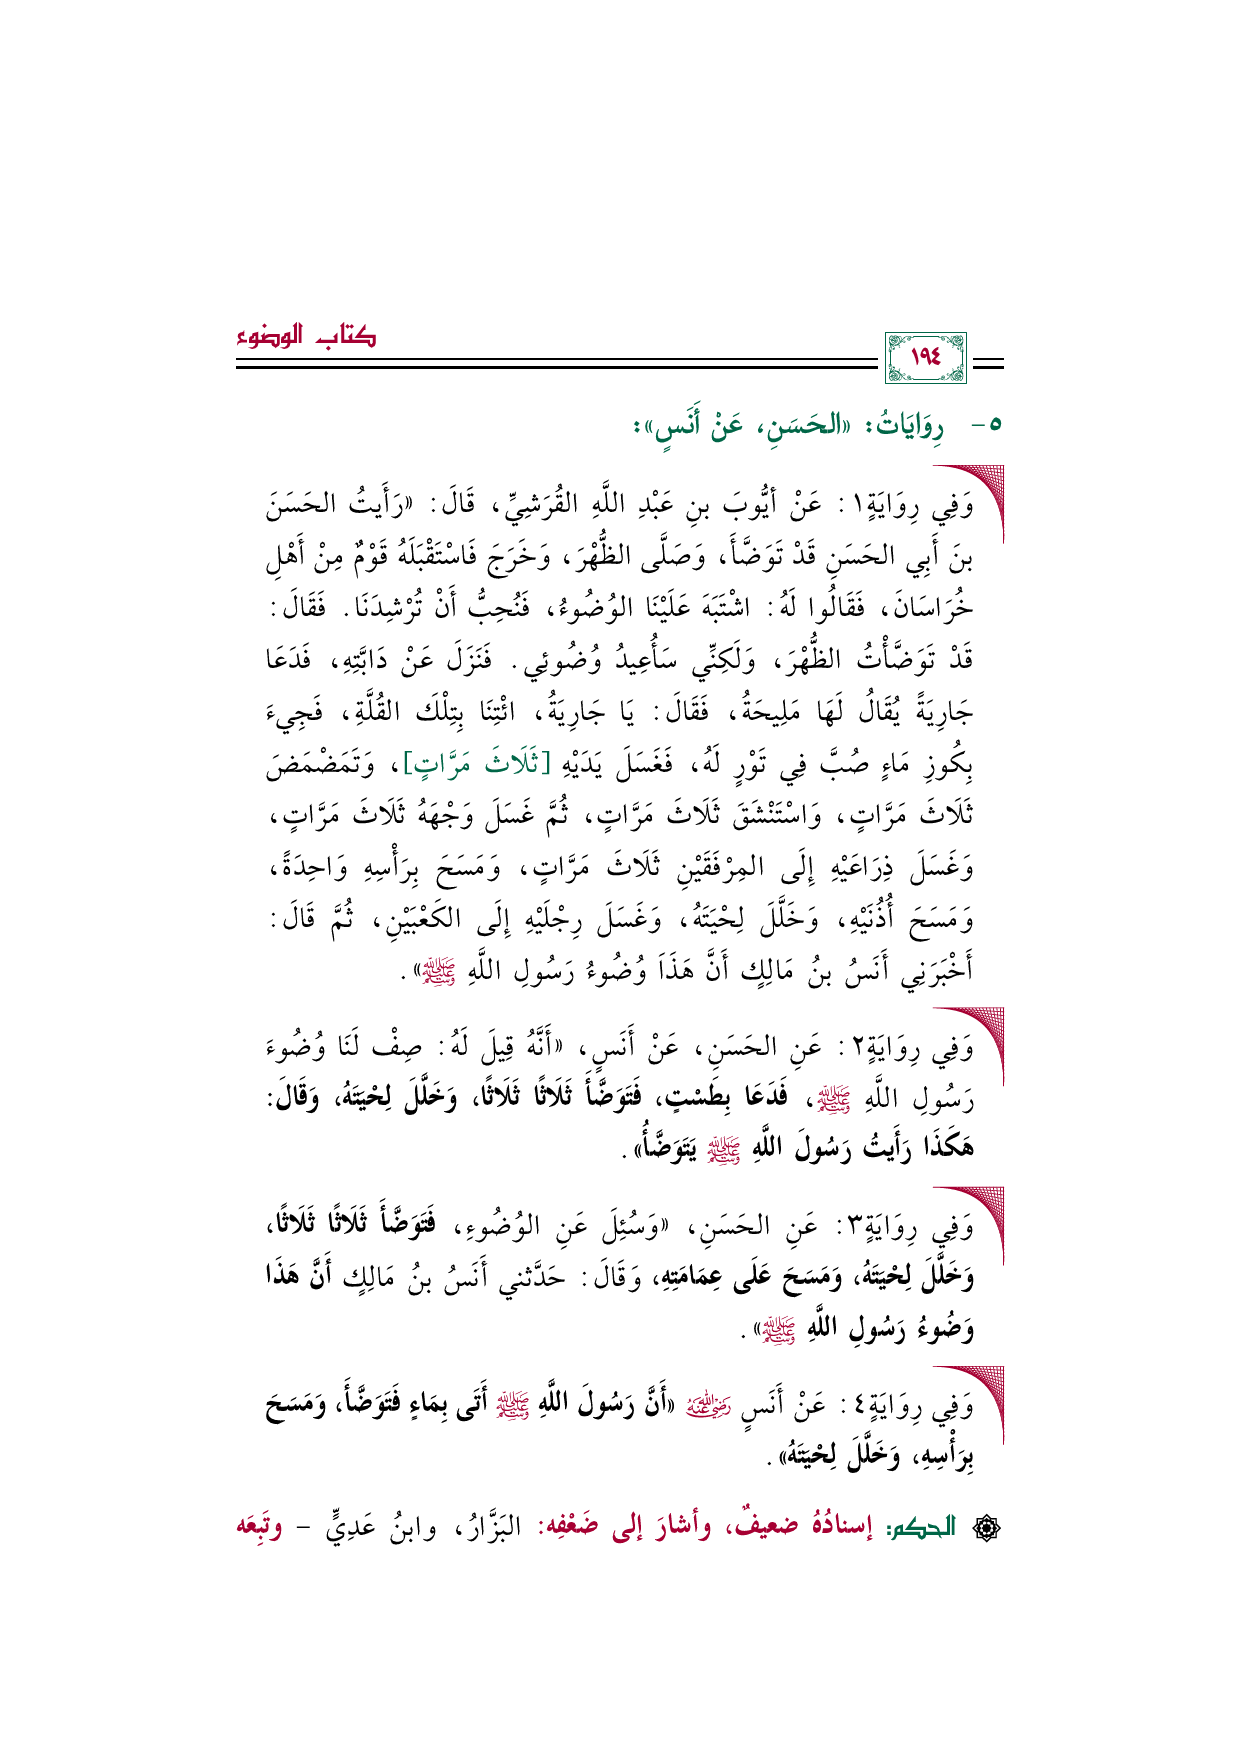 كتاب الوضوء
١٩٤
٥- رِوَايَاتُ: «الحَسَنِ، عَنْ أَنَسٍ»:
وَفِي رِوَايَةٍ١: عَنْ أيُّوبَ بنِ عَبْدِ اللَّهِ القُرَشِيِّ، قَالَ: «رَأَيتُ الحَسَنَ
بنَ أَبِي الحَسَنِ قَدْ تَوَضَّأَ، وَصَلَّى الظُّهْرَ، وَخَرَجَ فَاسْتَقْبَلَهُ قَوْمٌ مِنْ أَهْلِ
خُرَاسَانَ، فَقَالُوا لَهُ: اشْتَبَهَ عَلَيْنَا الوُضُوءُ، فَنُحِبُّ أَنْ تُرْشِدَنَا. فَقَالَ:
قَدْ تَوَضَّأْتُ الظُّهْرَ، وَلَكِنِّي سَأُعِيدُ وُضُوئِي. فَنَزَلَ عَنْ دَابَّتِهِ، فَدَعَا
جَارِيَةً يُقَالُ لَهَا مَلِيحَةُ، فَقَالَ: يَا جَارِيَةُ، ائْتِنَا بِتِلْكَ القُلَّةِ، فَجِيءَ
بِكُوزِ مَاءٍ صُبَّ فِي تَوْرٍ لَهُ، فَغَسَلَ يَدَيْهِ [ثَلَاثَ مَرَّاتٍ]، وَتَمَضْمَضَ
ثَلَاثَ مَرَّاتٍ، وَاسْتَنْشَقَ ثَلَاثَ مَرَّاتٍ، ثُمَّ غَسَلَ وَجْهَهُ ثَلَاثَ مَرَّاتٍ،
وَغَسَلَ ذِرَاعَيْهِ إِلَى المِرْفَقَيْنِ ثَلَاثَ مَرَّاتٍ، وَمَسَحَ بِرَأْسِهِ وَاحِدَةً،
وَمَسَحَ أُذُنَيْهِ، وَخَلَّلَ لِحْيَتَهُ، وَغَسَلَ رِجْلَيْهِ إِلَى الكَعْبَيْنِ، ثُمَّ قَالَ:
أَخْبَرَنِي أَنَسُ بنُ مَالِكٍ أَنَّ هَذَاَ وُضُوءُ رَسُولِ اللَّهِ ﷺ».
وَفِي رِوَايَةٍ٢: عَنِ الحَسَنِ، عَنْ أَنَسٍ، «أَنَّهُ قِيلَ لَهُ: صِفْ لَنَا وُضُوءَ
رَسُولِ اللَّهِ ﷺ، فَدَعَا بِطَسْتٍ، فَتَوَضَّأَ ثَلَاثًا ثَلَاثًا، وَخَلَّلَ لِحْيَتَهُ، وَقَالَ:
هَكَذَا رَأَيتُ رَسُولَ اللَّهِ ﷺ يَتَوَضَّأُ».
وَفِي رِوَايَةٍ٣: عَنِ الحَسَنِ، «وَسُئِلَ عَنِ الوُضُوءِ، فَتَوَضَّأَ ثَلَاثًا ثَلَاثًا،
وَخَلَّلَ لِحْيَتَهُ، وَمَسَحَ عَلَى عِمَامَتِهِ، وَقَالَ: حَدَّثني أَنَسُ بنُ مَالِكٍ أَنَّ هَذَا
وَضُوءُ رَسُولِ اللَّهِ ﷺ».
وَفِي رِوَايَةٍ٤: عَنْ أَنَسٍ رَضِيَ اللَّهُ عَنْهُ «أَنَّ رَسُولَ اللَّهِ ﷺ أَتَى بِمَاءٍ فَتَوَضَّأَ، وَمَسَحَ
بِرَأْسِهِ، وَخَلَّلَ لِحْيَتَهُ».
الحكم: إسنادُهُ ضعيفٌ، وأشارَ إلى ضَعْفِه: البَزَّارُ، وابنُ عَدِيٍّ - وتَبِعَه